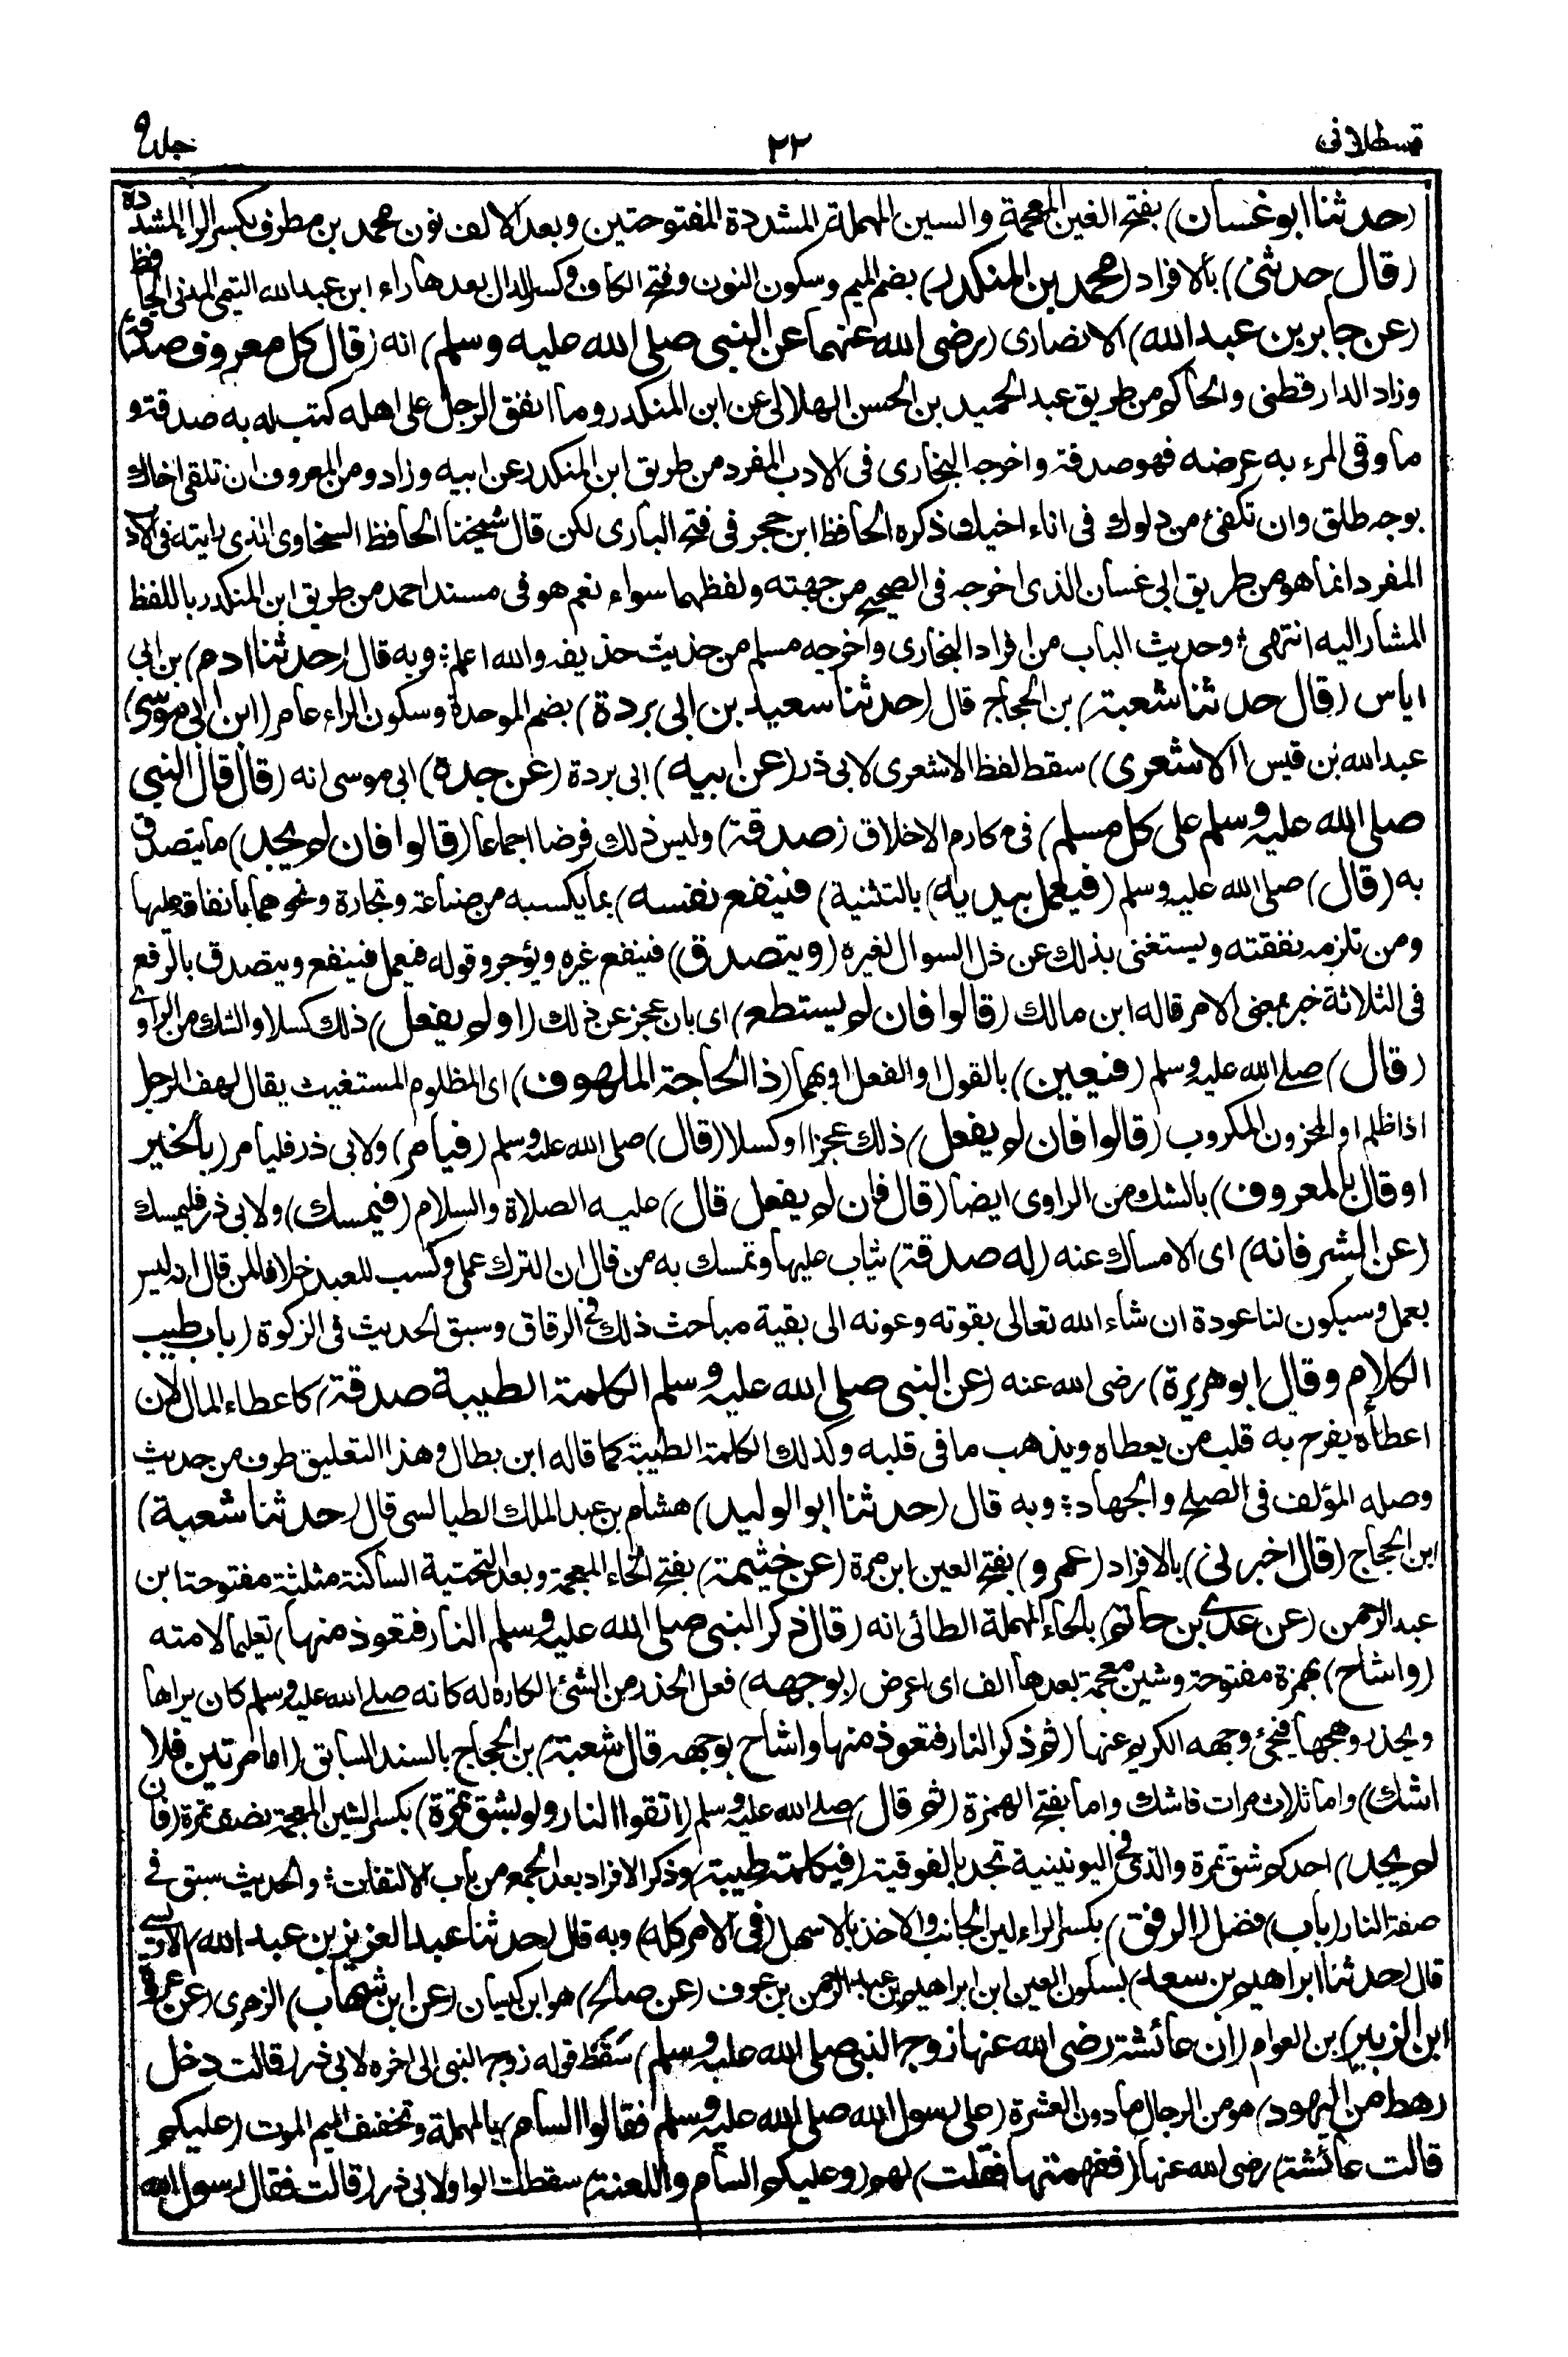 قسطلانی
٢٢
جلد ٩
(حدثنا ابو غسان) بفتح الغين المعجمة والسين المهملة المشددة المفتوحتين وبعد الالف نون محمد بن مطرف بكسر الراء المشددة
(قال حدثنى) بالافراد (محمد بن المنكدر) بضم الميم وسكون النون وفتح الكاف وكسر الدال بعدها راء ابن عبد الله التيمى المدنى الحافظ
(عن جابر بن عبد الله) الانصارى (رضى الله عنهما عن النبى صلى الله عليه وسلم) انه (قال كل معروف صدقة)
وزاد الدارقطنى والحاكم من طريق عبد الحميد بن الحسن الهلالى عن ابن المنكدر وما انفق الرجل على اهله كتب له به صدقة و
ما وقى المرء به عرضه فهو صدقة واخرجه البخارى فى الادب المفرد من طريق ابن المنكدر عن ابيه وزاد ومن المعروف ان تلقى اخاك
بوجه طلق وان تكفئ من دلوك فى اناء اخيك ذكره الحافظ ابن حجر فى فتح البارى لكن قال شيخنا الحافظ السخاوى الذى رايته فى الادب
المفرد انما هو من طريق ابى غسان الذى اخرجه فى الصحيح من جهته ولفظهما سواء نعم هو فى مسند احمد من طريق ابن المنكدر باللفظ
المشار اليه انتهى؛ وحديث الباب من افراد البخارى واخرجه مسلم من حديث حذيفة والله اعلم؛ وبه قال (حدثنا ادم) بن ابى
اياس (قال حدثنا شعبة) بن الحجاج قال (حدثنا سعيد بن ابى بردة) بضم الموحدة وسكون الراء عامر (ابن ابى موسى)
عبد الله بن قيس (الاشعرى) سقط لفظ الاشعرى لابى ذر (عن ابيه) ابى بردة (عن جده) ابى موسى انه (قال قال النبى
صلى الله عليه وسلم على كل مسلم) فى مكارم الاخلاق (صدقة) وليس ذلك فرضا اجماعا (قالوا فان لم يجد) ما يتصدق
به (قال) صلى الله عليه وسلم (فيعمل بيديه) بالتثنية (فينفع نفسه) بما يكسبه من صناعة وتجارة ونحوهما بانفاقه عليها
ومن تلزمه نفقته ويستغنى بذلك عن ذل السوال لغيره (ويتصدق) فينفع غيره ويؤجر وقوله فيعمل فينفع ويتصدق بالرفع
فى الثلاثة خبر بمعنى الامر قاله ابن مالك (قالوا فان لم يستطع) اى بان عجز عن ذلك (او لم يفعل) ذلك كسلا والشك من الراوى
(قال) صلے الله عليه وسلم (فيعين) بالقول او الفعل او بهما (ذا الحاجة الملهوف) اى المظلوم المستغيث يقال لهف الرجل
اذا ظلم او المحزون المكروب (قالوا فان لم يفعل) ذلك عجزا او كسلا (قال) صلى الله عليه وسلم (فيامر) ولابى ذر فليامر (بالخير
او قال بالمعروف) بالشك من الراوى ايضا (قال فان لم يفعل قال) عليه الصلاة والسلام (فيمسك) ولابى ذر فليمسك
(عن الشر فانه) اى الامساك عنه (له صدقة) يثاب عليها وتمسك به من قال ان الترك عمل وكسب للعبد خلافا لمن قال انه ليس
بعمل وسيكون لنا عودة ان شاء الله تعالى بقوته وعونه الى بقية مباحث ذلك فى الرقاق وسبق الحديث فى الزكوة (باب طيب
الكلام وقال ابو هريرة) رضى الله عنه (عن النبى صلى الله عليه وسلم الكلمة الطيبة صدقة) كاعطاء المال لان
اعطاه يفرح به قلب من يعطاه ويذهب ما فى قلبه وكذلك الكلمة الطيبة كما قاله ابن بطال وهذا التعليق طرف من حديث
وصله المؤلف فى الصلح والجهاد؛ وبه قال (حدثنا ابو الوليد) هشام بن عبد الملك الطيالسى قال (حدثنا شعبة)
ابن الحجاج (قال اخبرنى) بالافراد (عمرو) بفتح العين ابن مرة (عن خيثمة) بفتح الخاء المعجمة وبعد التحتية الساكنة مثلثة مفتوحة ابن
عبد الرحمن (عن عدى بن حاتم) بالحاء المهملة الطائى انه (قال ذكر النبى صلى الله عليه وسلم النار فتعوذ منها) تعليما لامته
(واشاح) بهمزة مفتوحة وشين معجمة بعدها الف اى اعرض (بوجهه) فعل الحذر من الشئ الكاره له كانه صلے الله عليه وسلم كان يراها
ويحذر وهجها فينحى وجهه الكريم عنها (ثم ذكر النار فتعوذ منها واشاح بوجهه قال شعبة) بن الحجاج بالسند السابق (اما مرتين فلا
اشك) واما ثلاث مرات فاشك واما بفتح الهمزة (ثم قال) صلے الله عليه وسلم (اتقوا النار ولو بشق تمرة) بكسر الشين المعجمة نصف تمرة (فان
لم يجد) احدكم شق تمرة والذى فى اليونينية تجد بالفوقية (فبكلمة طيبة) وذكر الافراد بعد الجمع من باب الالتفات؛ والحديث سبق فى
صفة النار (باب) فضل (الرفق) بكسر الراء لين الجانب والاخذ بالاسهل (فى الامر كله) وبه قال (حدثنا عبد العزيز بن عبد الله) الاويسى
قال (حدثنا ابراهيم بن سعد) بسكون العين ابن ابراهيم بن عبد الرحمن بن عوف (عن صالح) هو ابن كيسان (عن ابن شهاب) الزهرى (عن عروة
ابن الزبير) بن العوام (ان عائشة رضى الله عنها زوج النبى صلى الله عليه وسلم) سقط قوله زوج النبى الى اخره لابى ذر (قالت دخل
رهط من اليهود) هو من الرجال ما دون العشرة (على رسول الله صلى الله عليه وسلم فقالوا السام) بالمهملة وتخفيف الميم الموت (عليكم
قالت عائشة) رضى الله عنها (ففهمتها فقلت) لهم (وعليكم السام واللعنة) سقطت الواو لابى ذر (قالت فقال رسول الله